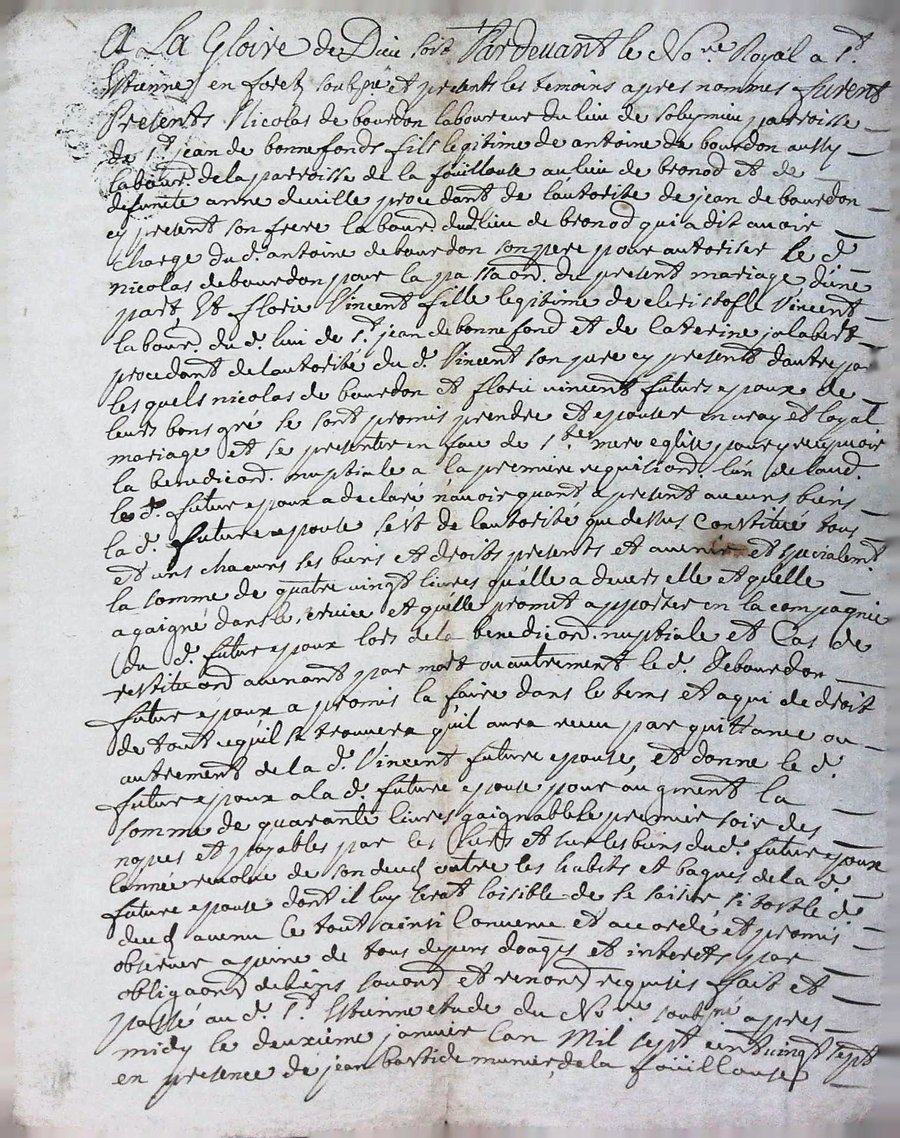 A La Gloire de Dieu soit Pardevant le No.re Royal a S.t
Estienne en foretz soubsne et presents les temoins apres nommes furent
Presents Nicolas de bourdon laboureur du lieu de solaymieu parroisse
de S.t jean de bonnefonds fils legitime de antoine de bourdon aussy
labour. de la parroisse de la fouillouse au lieu de bronod et de
defunte anne deville procedant de l'autorite de jean de bourdon
cy present son frere labour. dud. lieu de bronod qui a dit avoir
charge du d. antoine de bourdon son pere pour autoriser le d.
nicolas de bourdon pour la passaon. du present mariage d'une
part, Et florie Vincent fille legitime de cristofle Vincent
labour. du d. lieu de S.t jean de bonnefond et de caterine jalabert
procedant de l'autorité du d. Vincent son pere cy present d'autre par
lesquels nicolas de bourdon et florie vincent futurs epoux de
leurs bons gré se sont promis prendre et epouser en vray et loyal
mariage et se presenter en face de S.te mere eglise pour y recepvoir
la benediçon. nuptiale a la premiere requisiçon. l'un de l'aud.
le d. futur epoux a declaré n'avoir quant a present aucuns biens
la d. future epouse s'est de l'autorité que dessus constitué tous
et uns chacuns ses biens et droits presents et avenir et specialemt
la somme de quatre vingt livres qu'elle a devers elle et quelle
a gaigné dans le service et qu'elle promet apporter en la compagnie
du d. futur epoux lors de la benediçon. nuptiale et Cas de
restituçon avenant par mort ou autrement le d. Debourdon
futur epoux a promis la faire dans le tems et a qui de droit
de tout ce qu'il se trouvera qu'il aura receu par quittance ou
autrement de la d. Vincent future epouse, et donne le d.
futur epoux a la d. future epouse pour augment la
somme de quarante livres gaignable le premier soir des
noçes et payables par les hers et sur les biens du d. futur epoux
l'année revolue de son deces outre les habits et bagues de la d.
future epouse dont il luy serat loisible de se saisir si tost le d.
deces avenu le tout ainsi Convenu et accordé et promis
observer a peine de tous depens doages et interets par
obligaon de biens soumon et renon requises fait et
passé au d. S.t Estienne etude du No.re soubsné apres
midy le deuxieme janvier l'an Mil sept cent vingt sept
en presence de jean bastide munier de la fouillouse